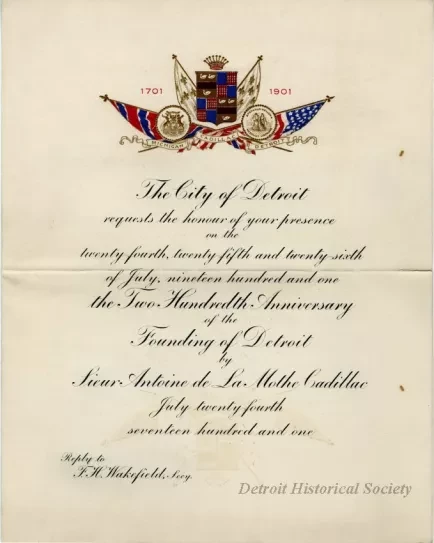 1701 1901
MICHIGAN CADILLAC DETROIT
The City of Detroit
requests the honour of your presence
on the
twenty-fourth, twenty-fifth and twenty-sixth
of July, nineteen hundred and one
the Two Hundredth Anniversary
of the
Founding of Detroit
by
Sieur Antoine de La Mothe Cadillac
July twenty fourth
seventeen hundred and one
Reply to
F. H. Wakefield, Secy.
Detroit Historical Society